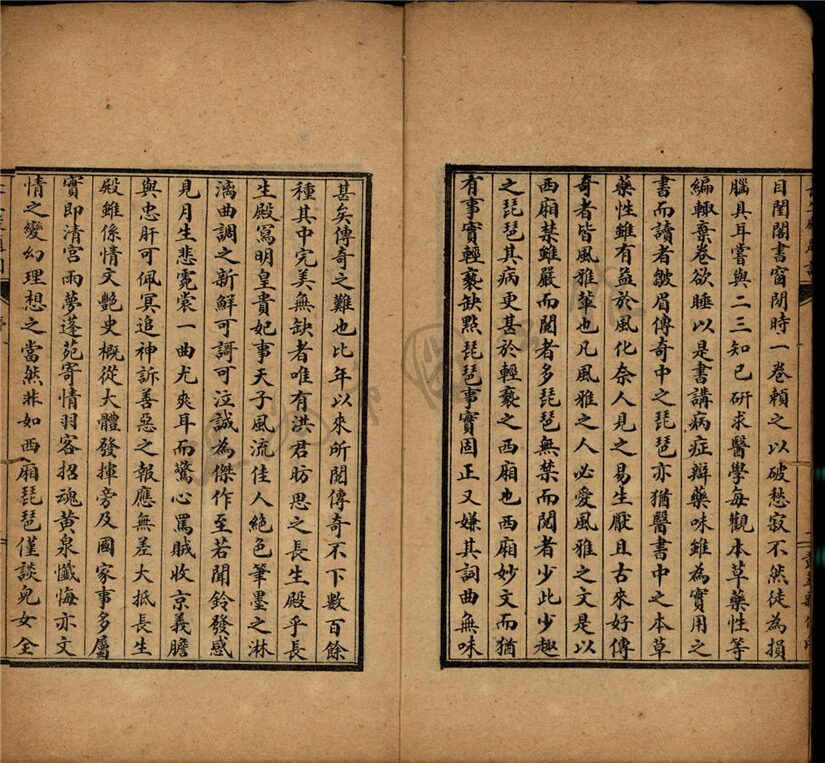 目閨閣書窗閒時一卷賴之以破愁寂不然徒為損
腦具耳嘗與二三知己研求醫學每觀本草藥性等
編輒棄卷欲睡以是書講病症辯藥味雖為實用之
書而讀者皺眉傳奇中之琵琶亦猶醫書中之本草
藥性雖有益於風化奈人見之易生厭且古來好傳
奇者皆風雅輩也凡風雅之人必愛風雅之文是以
西廂禁雖嚴而閱者多琵琶無禁而閱者少此少趣
之琵琶其病更甚於輕褻之西廂也西廂妙文而猶
有事實輕褻缺點琵琶事實固正又嫌其詞曲無味
甚矣傳奇之難也比年以來所閱傳奇不下數百餘
種其中完美無缺者唯有洪君昉思之長生殿乎長
生殿寫明皇貴妃事天子風流佳人絕色筆墨之淋
漓曲調之新鮮可謌可泣誠為傑作至若聞鈴發感
見月生悲霓裳一曲尤爽耳而驚心罵賊收京義膽
與忠肝可佩冥追神訴善惡之報應無差大抵長生
殿雖係情文艷史概從大體發揮旁及國家事多屬
實即清宮雨夢蓬苑寄情羽客招魂黃泉懺悔亦文
情之變幻理想之當然非如西廂琵琶僅談兒女全